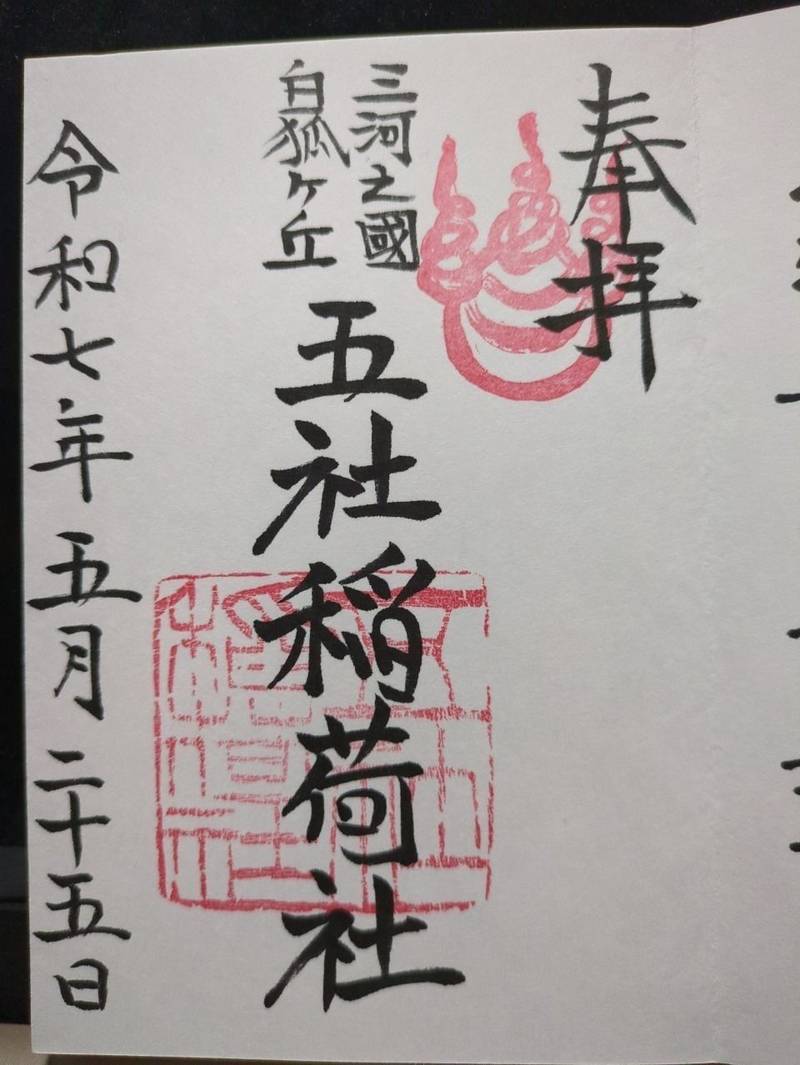 奉拝
三河之國
白狐ヶ丘
五社稲荷社
令和七年五月二十五日